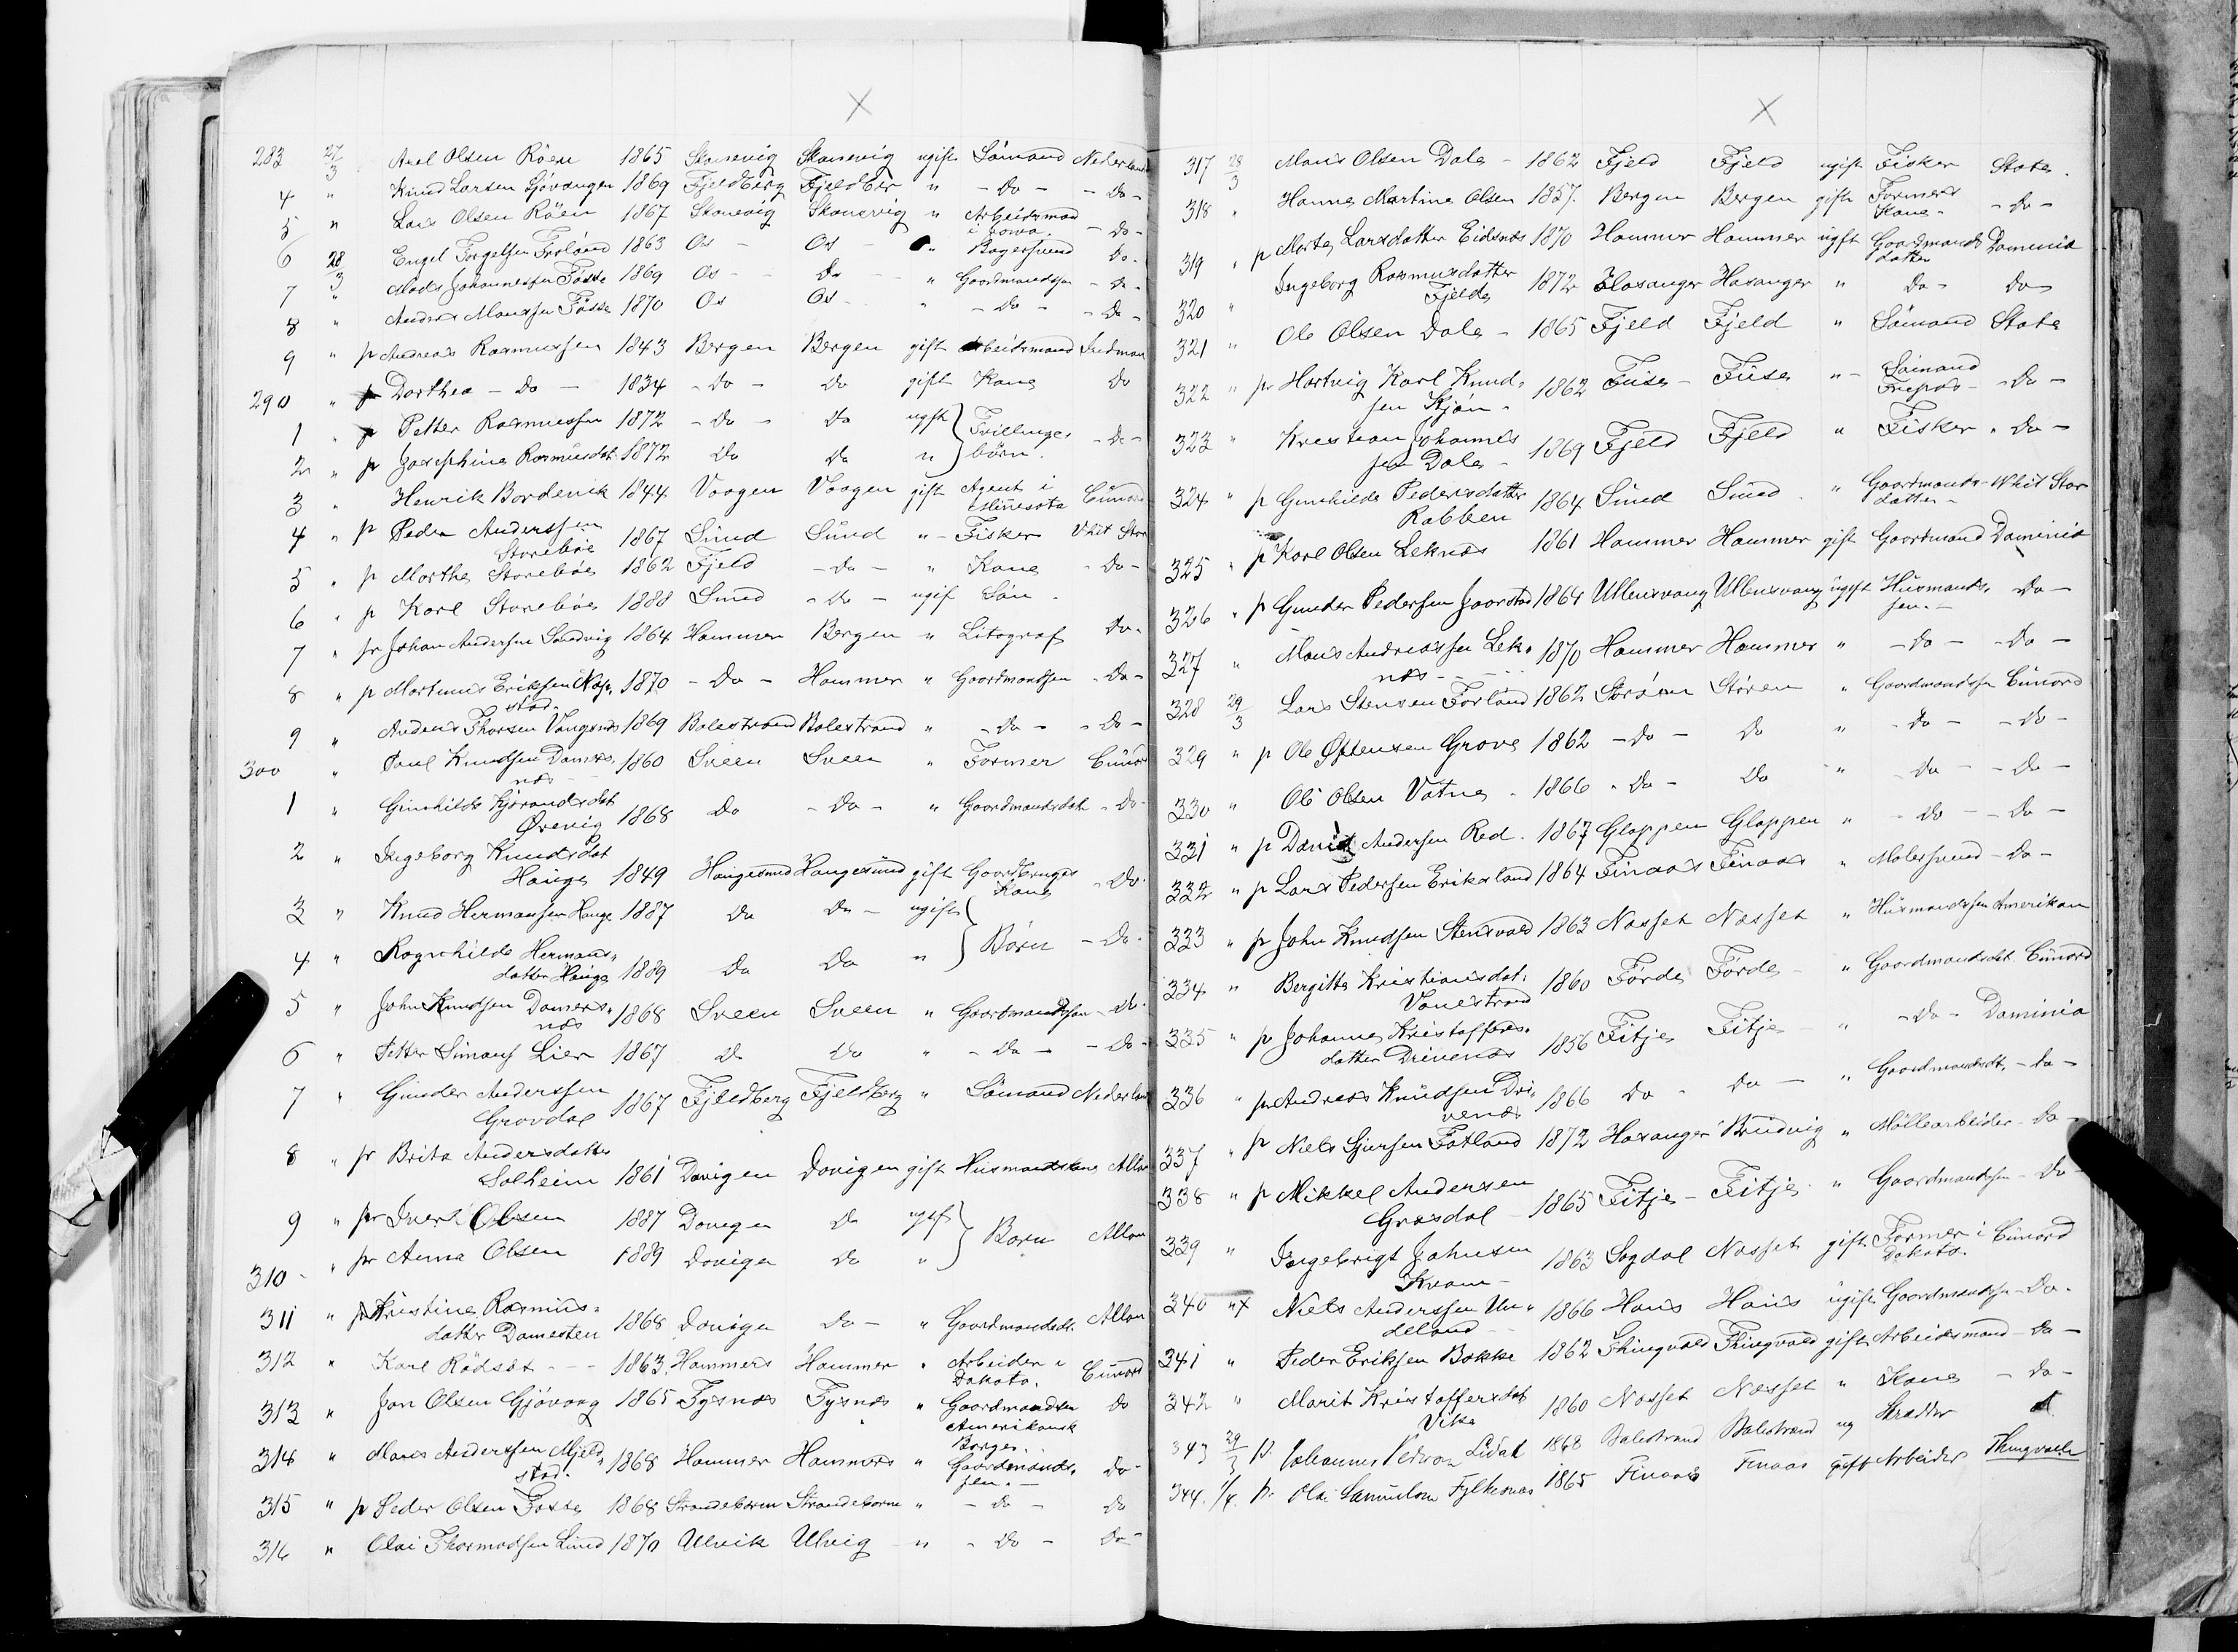 283 27/3 Axel Olsen Röen 1865 Skonevig Skonevig ugift Sömand Nederland
4 " Knud Larsen Sjövangen 1869 Fjeldberg Fjeldber " - Do - - Do -
5 " Lars Olsen Röen 1867 Skonevig Skonevig " Arbeidsmand - Do -
i Iowa.
6 28/3 Engel Torgelsen Froland 1863 Os - Os - " Bagersvend Do -
7 " Mads Johannessen Fosse 1869 Os - - Do - - " Gaardmandssn - Do -
8 " Anders Monssen Fosse 1870 Os Os - " - Do - - Do -
9 " p Andreas Rasmussen 1843 Bergen Bergen gift Arbeidsmand
290 " p Dorthea - Do - 1834 - Do - Do gift Kone Do
1 " p Petter Rasmussen 1872 - Do - Do ugft } Tvillinge- - Do -
2 " p Josephine Rasmusdat. 1872 Do Do " } börn.
3 Henrik Bordevik 1844 Voogen Voogen gift Agent i Cunord
Minesota
4 " p Peder Anderssen
Storeböe 1867 Sund Sund " - Fisker Vhit Stor
5 " p Marthe Storeböe 1862 Fjeld - Do - " Kone - Do -
6 " p Karl Storeböe 1888 Sund - Do - ugif Sön -
7 " pr Johan Andersen Sandvig 1864 Hammer Bergen " Litograf Do -
8 " p Martinus Eriksen 1870 - Do - Hammer " Gaardmandsen - Do -
stad.
9 " Anders Thorsen Vangsnes 1869 Balestrand Balestrand " - Do - - Do -
300 " Paul Knudsen Damers- 1860 Sveen Sveen " Farmer Cunor
næs
1 " Gunhilde Gjörandsdat
Örevig 1868 Do - Do - " Gaardmandsdat - Do -
2 " Ingeborg Knudsdat
Hauge 1849 Haugesund Haugesund gift Gaardbruger - Do -
Kone
3 " Knud Hermansen Hauge 1887 Do Do - ugift }
4 " Ragnhilde Hermans- } Börn - Do -
datter Hauge 1889 Do Do "
5 " John Knudsen Damers- 1868 Sveen Sveen " Gaardmandssen - Do -
næs
6 " Petter Simons Lier 1867 Do Do " - Do - - Do -
7 " Gunder Anderssen
Grovdal 1867 Fjeldberg Fjeldberg " Sömand Nederland
8 " pr Brita Andersdatter
Solheim 1861 Davigen Davigen gift Husmandskone Allan
9 " pr Ivert Olsen 1887 Davigen Do ugif } Börn Allan
310 - " pr Anna Olsen 1889 Davigen Do " }
311 " p Kristine Rasmus-
datter Damesten 1868 Davigen Do - " Gaardmandsdt. Allan
312 " Karl Rödset - - - 1863. Hammer Hammer " Arbeider i Cunord
Dakota.
313 " Jon Olsen Gjövaag 1865 Tysnæs Tysnæs " Gaardmandsen Do
Amerikansk
Borger.
314 " Mons Anderssen Mjeld- 1868 Hammer Hammer " Gaardmands- Do -
stad. sen. -
315 " p Peder Olsen Fosse 1868 Strandebarm Strandebarm " - Do - Do
316 " Olai Thormodsen Lund 1870 Ulvik Ulvig " - Do - Do -
317 28/3 Mons Olsen Dale - 1862 Fjeld Fjeld ugift Fisker State.
318 " Hanne Martine Olsen 1857. Bergen Bergen gift Farmers - Do -
Kone -
319 " p Marta Larsdatter Eidsnes 1870 Hammer Hammer ugft Gaardmands Dominia
datter
320 " Ingeborg Rasmusdatter 1872 Hosanger Hosanger " Do - Do
Fjelde
321 " Ole Olsen Dale - 1865 Fjeld Fjeld " Sömand State
322 " pr Hartvig Karl Knud- 1862 Fuse - Fuse " - Sömand - Do -
sen Kjön -
323 " Kristian Johannes
sen Dale - 1869 Fjeld Fjeld " Fisker - Do -
324 " p Gunhilde Pedersdatter
Robben 1864 Sund Sund " Gaardmands- Whit Star
datter -
325 " p Karl Olsen Leknes 1861 Hammer Hammer gift Gaardmand Dominia
326 " p Gunder Pedersen Jaarstad 1864 Ullensvang Ullensvang ugift Husmands- Do -
sen. -
327 " Mons Andreassen Lek- 1870 Hammer Hammer " - Do - - Do -
nes - -
328 29/3 Lars Stensen Forland 1862 Stören " Gaardmandssn Cunord
329 " p Ole Östensen Grove 1862 - Do - Do " - Do - - Do -
330 " Ole Olsen Vatne - 1866 - Do - Do " - Do - - Do -
331 " p David Andersen Red. 1867 Gloppen Gloppen " - Do - - Do -
332 " p Lars Pedersen Eriksland 1864 Finaas Finaas " Malersvend - Do -
333 " p John Knudsen Stensvold 1863 Nesset Nesset " Husmandssen Amerikan
334 " Bergitte Kristiansdat. 1860 Förde Förde " Gaardmandsdat Cunord
Vonestrand
335 " p Johanne Kristoffers- 1856 Fitje Fitje - " - Do - Dominia
datter Drivenes
336 " pr Andreas Knudsen Dri- 1866 Do - Do - " Gaardmandsdt. - Do -
venes
337 " p Niels Gjersen Fotland 1872 Hosanger Bruvig " Möllearbeider - Do
338 " p Mikkel Andersen
Grosdal - 1865 Fitje - Fitje " Gaardmandsen - Do -
339 " Ingebrigt Johnsen 1863 Sogdal Nesset gift Farmer i Cunord
Kvam - Dakota.
340 " x Niels Anderssen Un- 1866 Haus Haus ugift Gaardmandssn - Do -
deland - -
341 " Peder Eriksen Bakke 1862 Thingvold Thingvold gift Arbeidsmand - Do -
342 " Marit Kristoffersdat 1860 Nesset Nesset " Kone - Do -
Vike
343 29/3 p. Johannes Pedersen Lidal 1868 Balestrand Balestrand ug Skrædder
344. 1/4. p. Olai Samuelsen Fylkesnes 1865 Finaas Finaas gift Arbeider Thingvalla